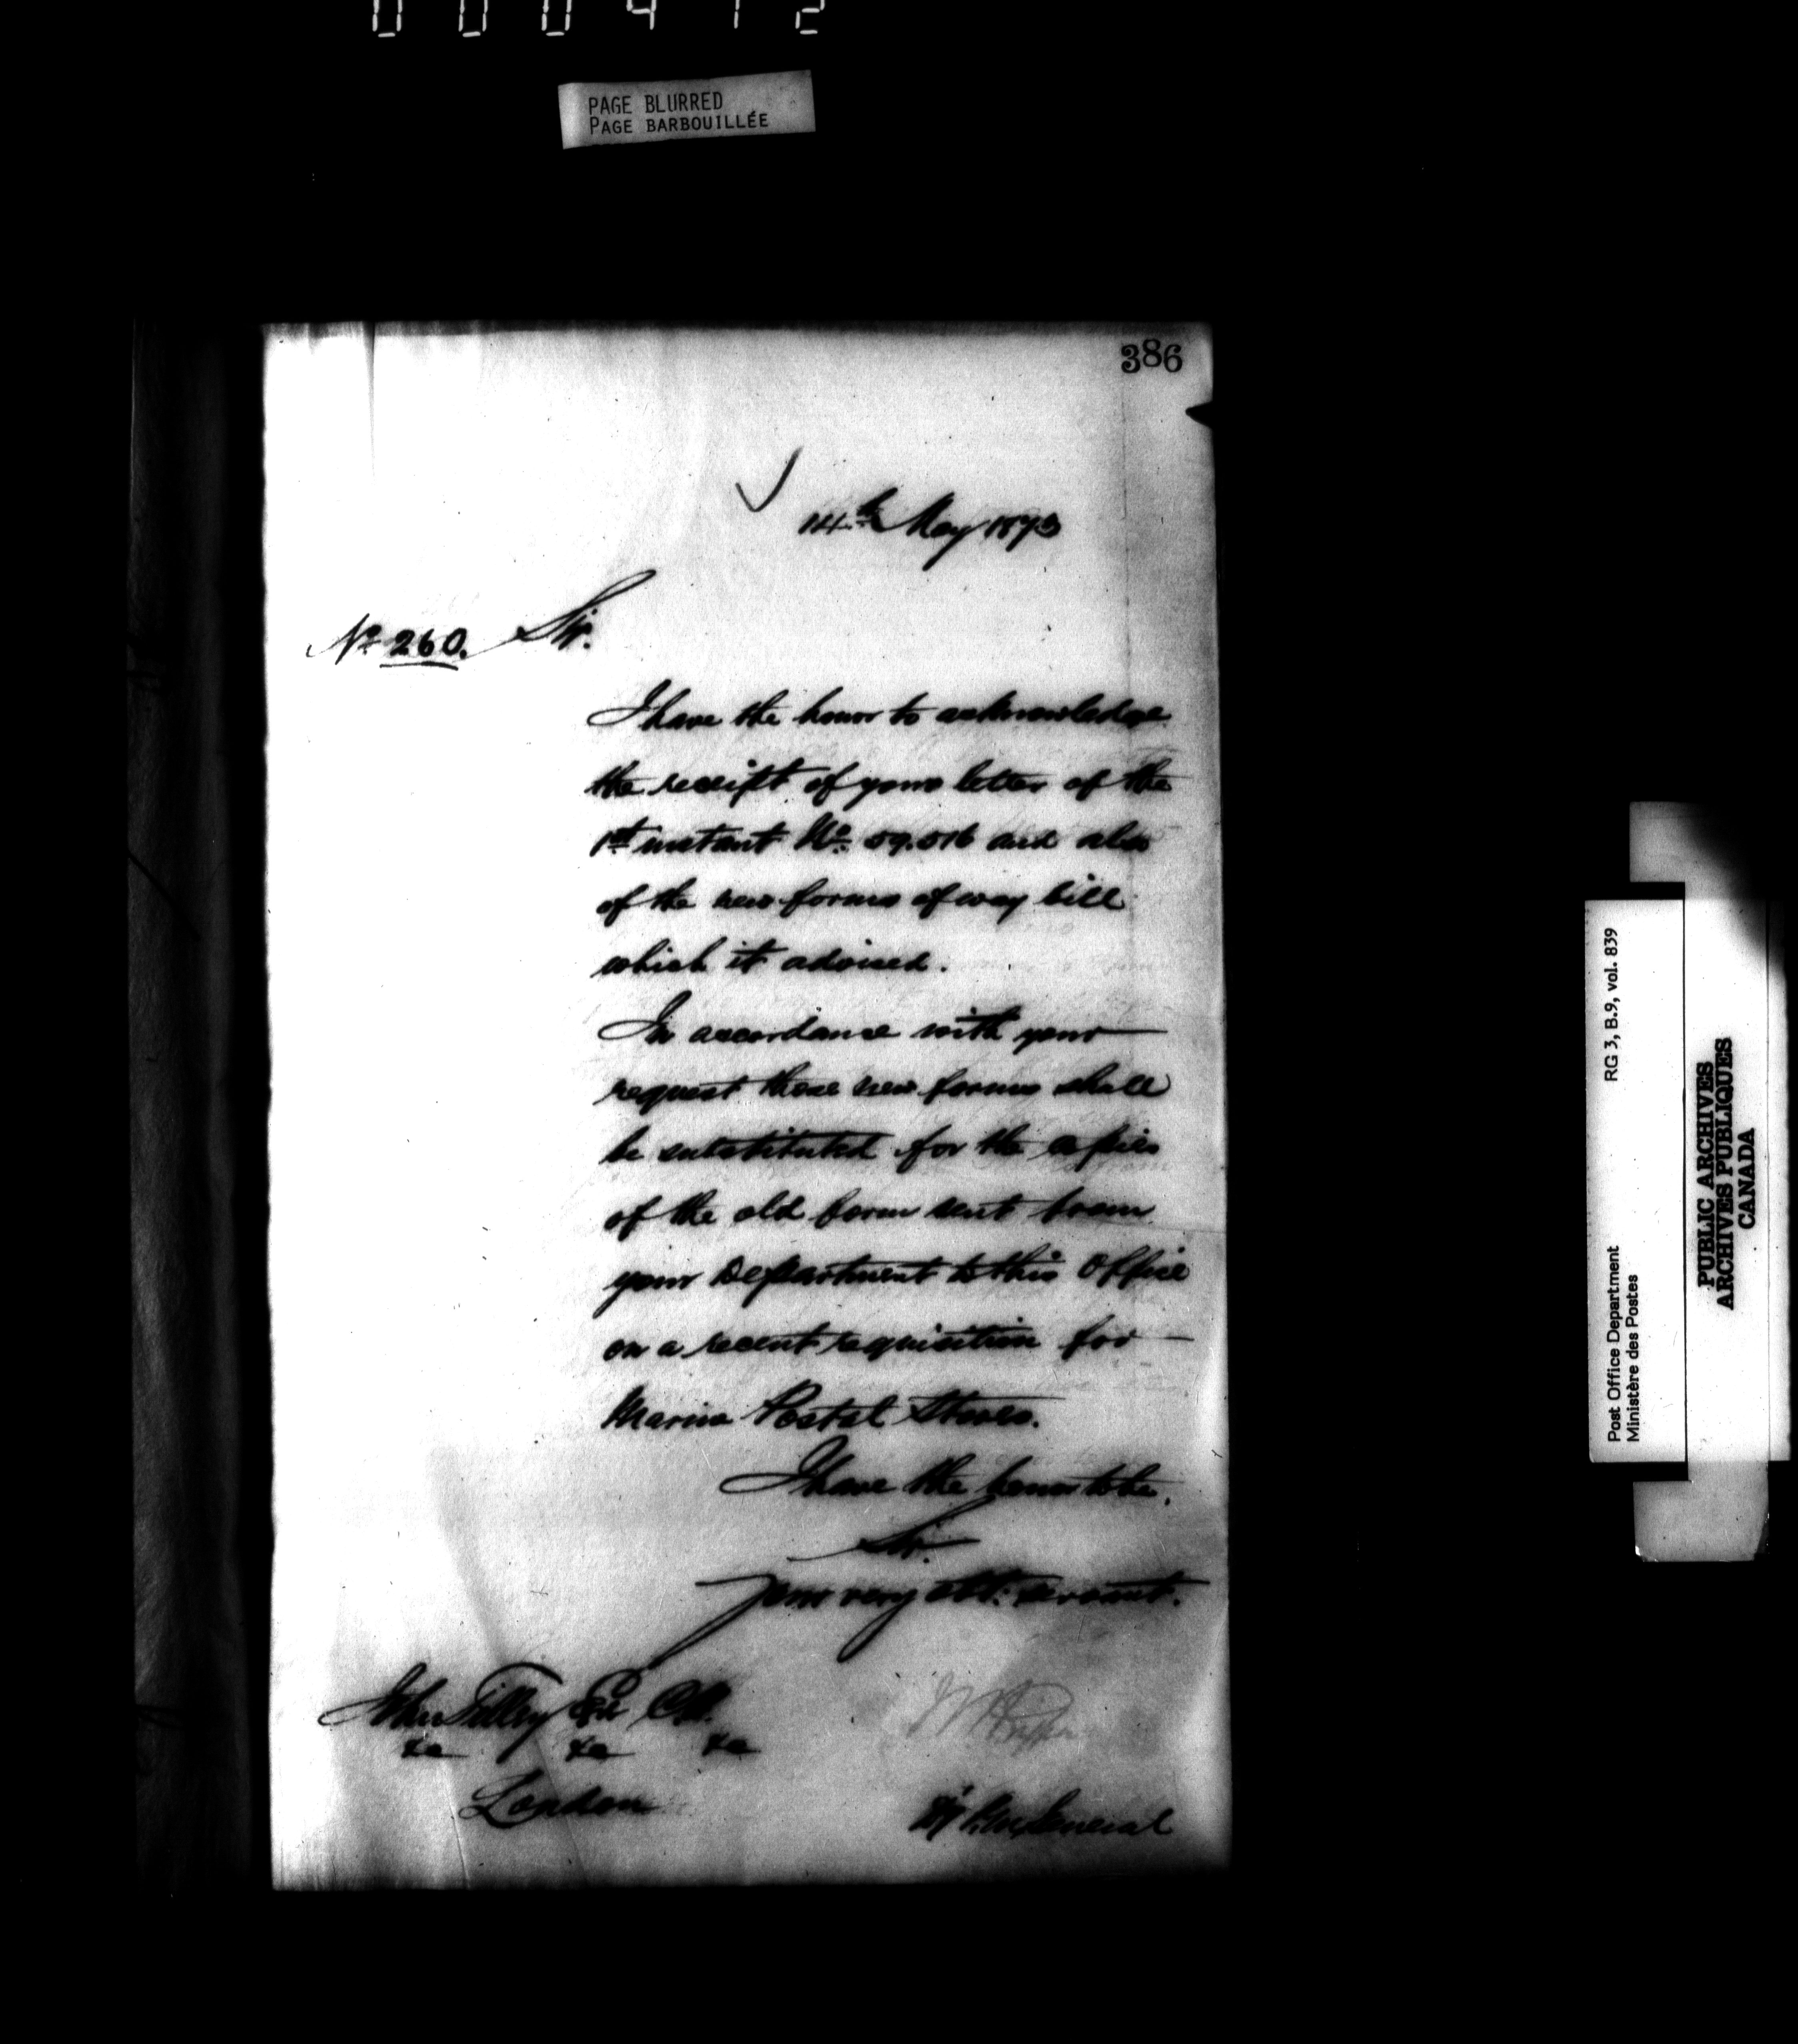 000412
PAGE BLURRED
PAGE BARBOUILLÉE
386
14th May 1873
No 260. Sir.
I have the honor to acknowledge
the receipt of your letter of the
1st instant No. 59.516 and also
of the new forms of way bill
which it advised.
In accordance with your
request these new forms shall
be substituted for the copies
of the old form sent from
your Department to this Office
on a recent requisition for
Marine Postal Stores.
I have the honor to be.
Sir.
Your very obt. servant.
John Tilley Esq
&c &c &c
London
General
RG 3, B.9, vol. 839
Post Office Department
Ministère des Postes
PUBLIC ARCHIVES
ARCHIVES PUBLIQUES
CANADA